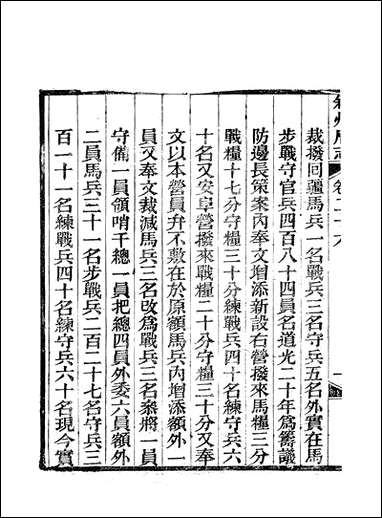 裁撥回疆馬兵一名戰兵三名守兵五名外實在馬
步戰守官兵四百八十四員名道光二十年爲籌議
防邊長策案內奉文增添新設右營撥來馬糧三分
戰糧十七分守糧三十分練戰兵四十名練守兵六
十名又安阜營撥來戰糧二十分守糧三十分又奉
文以本營員弁不敷在於原額馬兵內增添額外一
員又奉文裁減馬兵三名改爲戰兵三名叅將一員
守備一員領哨千總一員把總四員外委六員額外
二員馬兵三十一名步戰兵二百二十七名守兵三
百一十一名練戰兵四十名練守兵六十名現今實